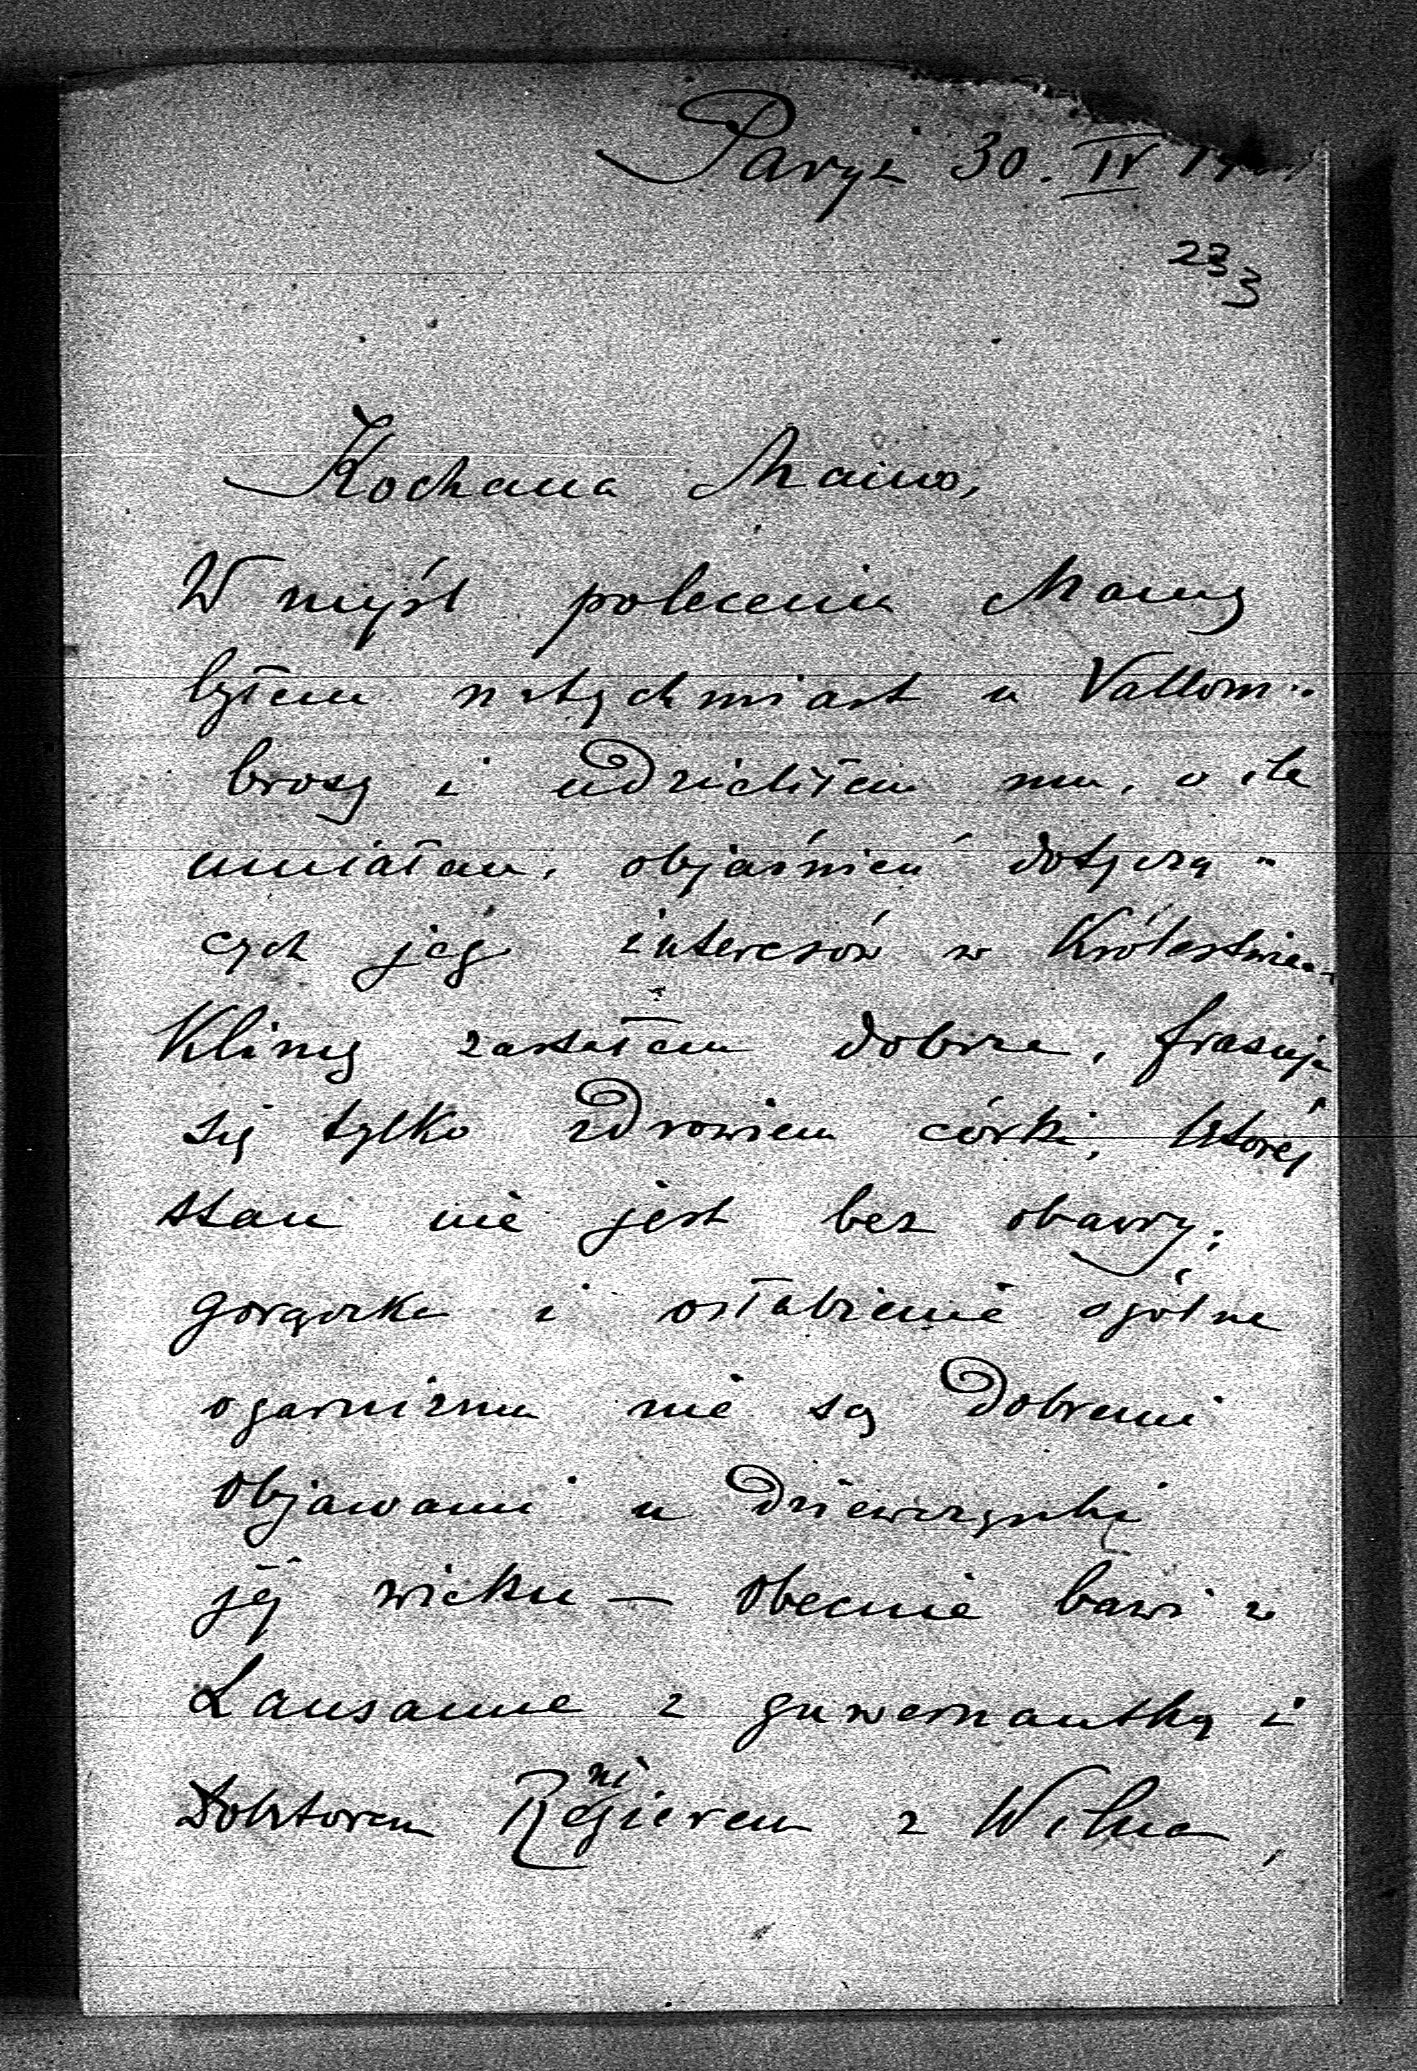 Paryż 30. IV 19
233
Kochana Mamo,
W myśl polecenia Mamy
byłem natychmiast u Vallom-
brosy i udzieliłem mu, o ile
umiałem, objaśnień dotyczą-
cych jego interesów w Królestwie.
Klimę zastałem dobrze, frasuje
się tylko zdrowiem córki, której
stan nie jest bez obawy;
gorączka i osłabienie ogólne
ogarnizmu nie są dobremi
objawami u dziewczynki
jej wieku — Obecnie bawi w
Lausanne z guwernantką i
Doktorem z Wilna,